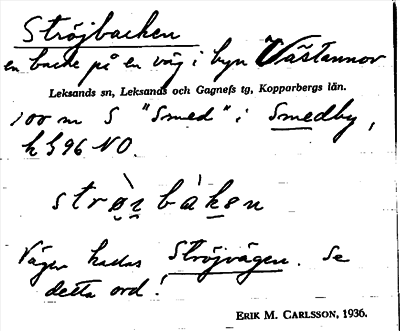 Ströjbacken
en backe på en väg i byn Västannor
Leksands sn, Leksands och Gagnefs tg, Kopparbergs län.
100 m S "Smed" i Smedby,
k G96 NO.
Vägen kallas Ströjvägen. Se
detta ord!
ERIK M. CARLSSON, 1936.